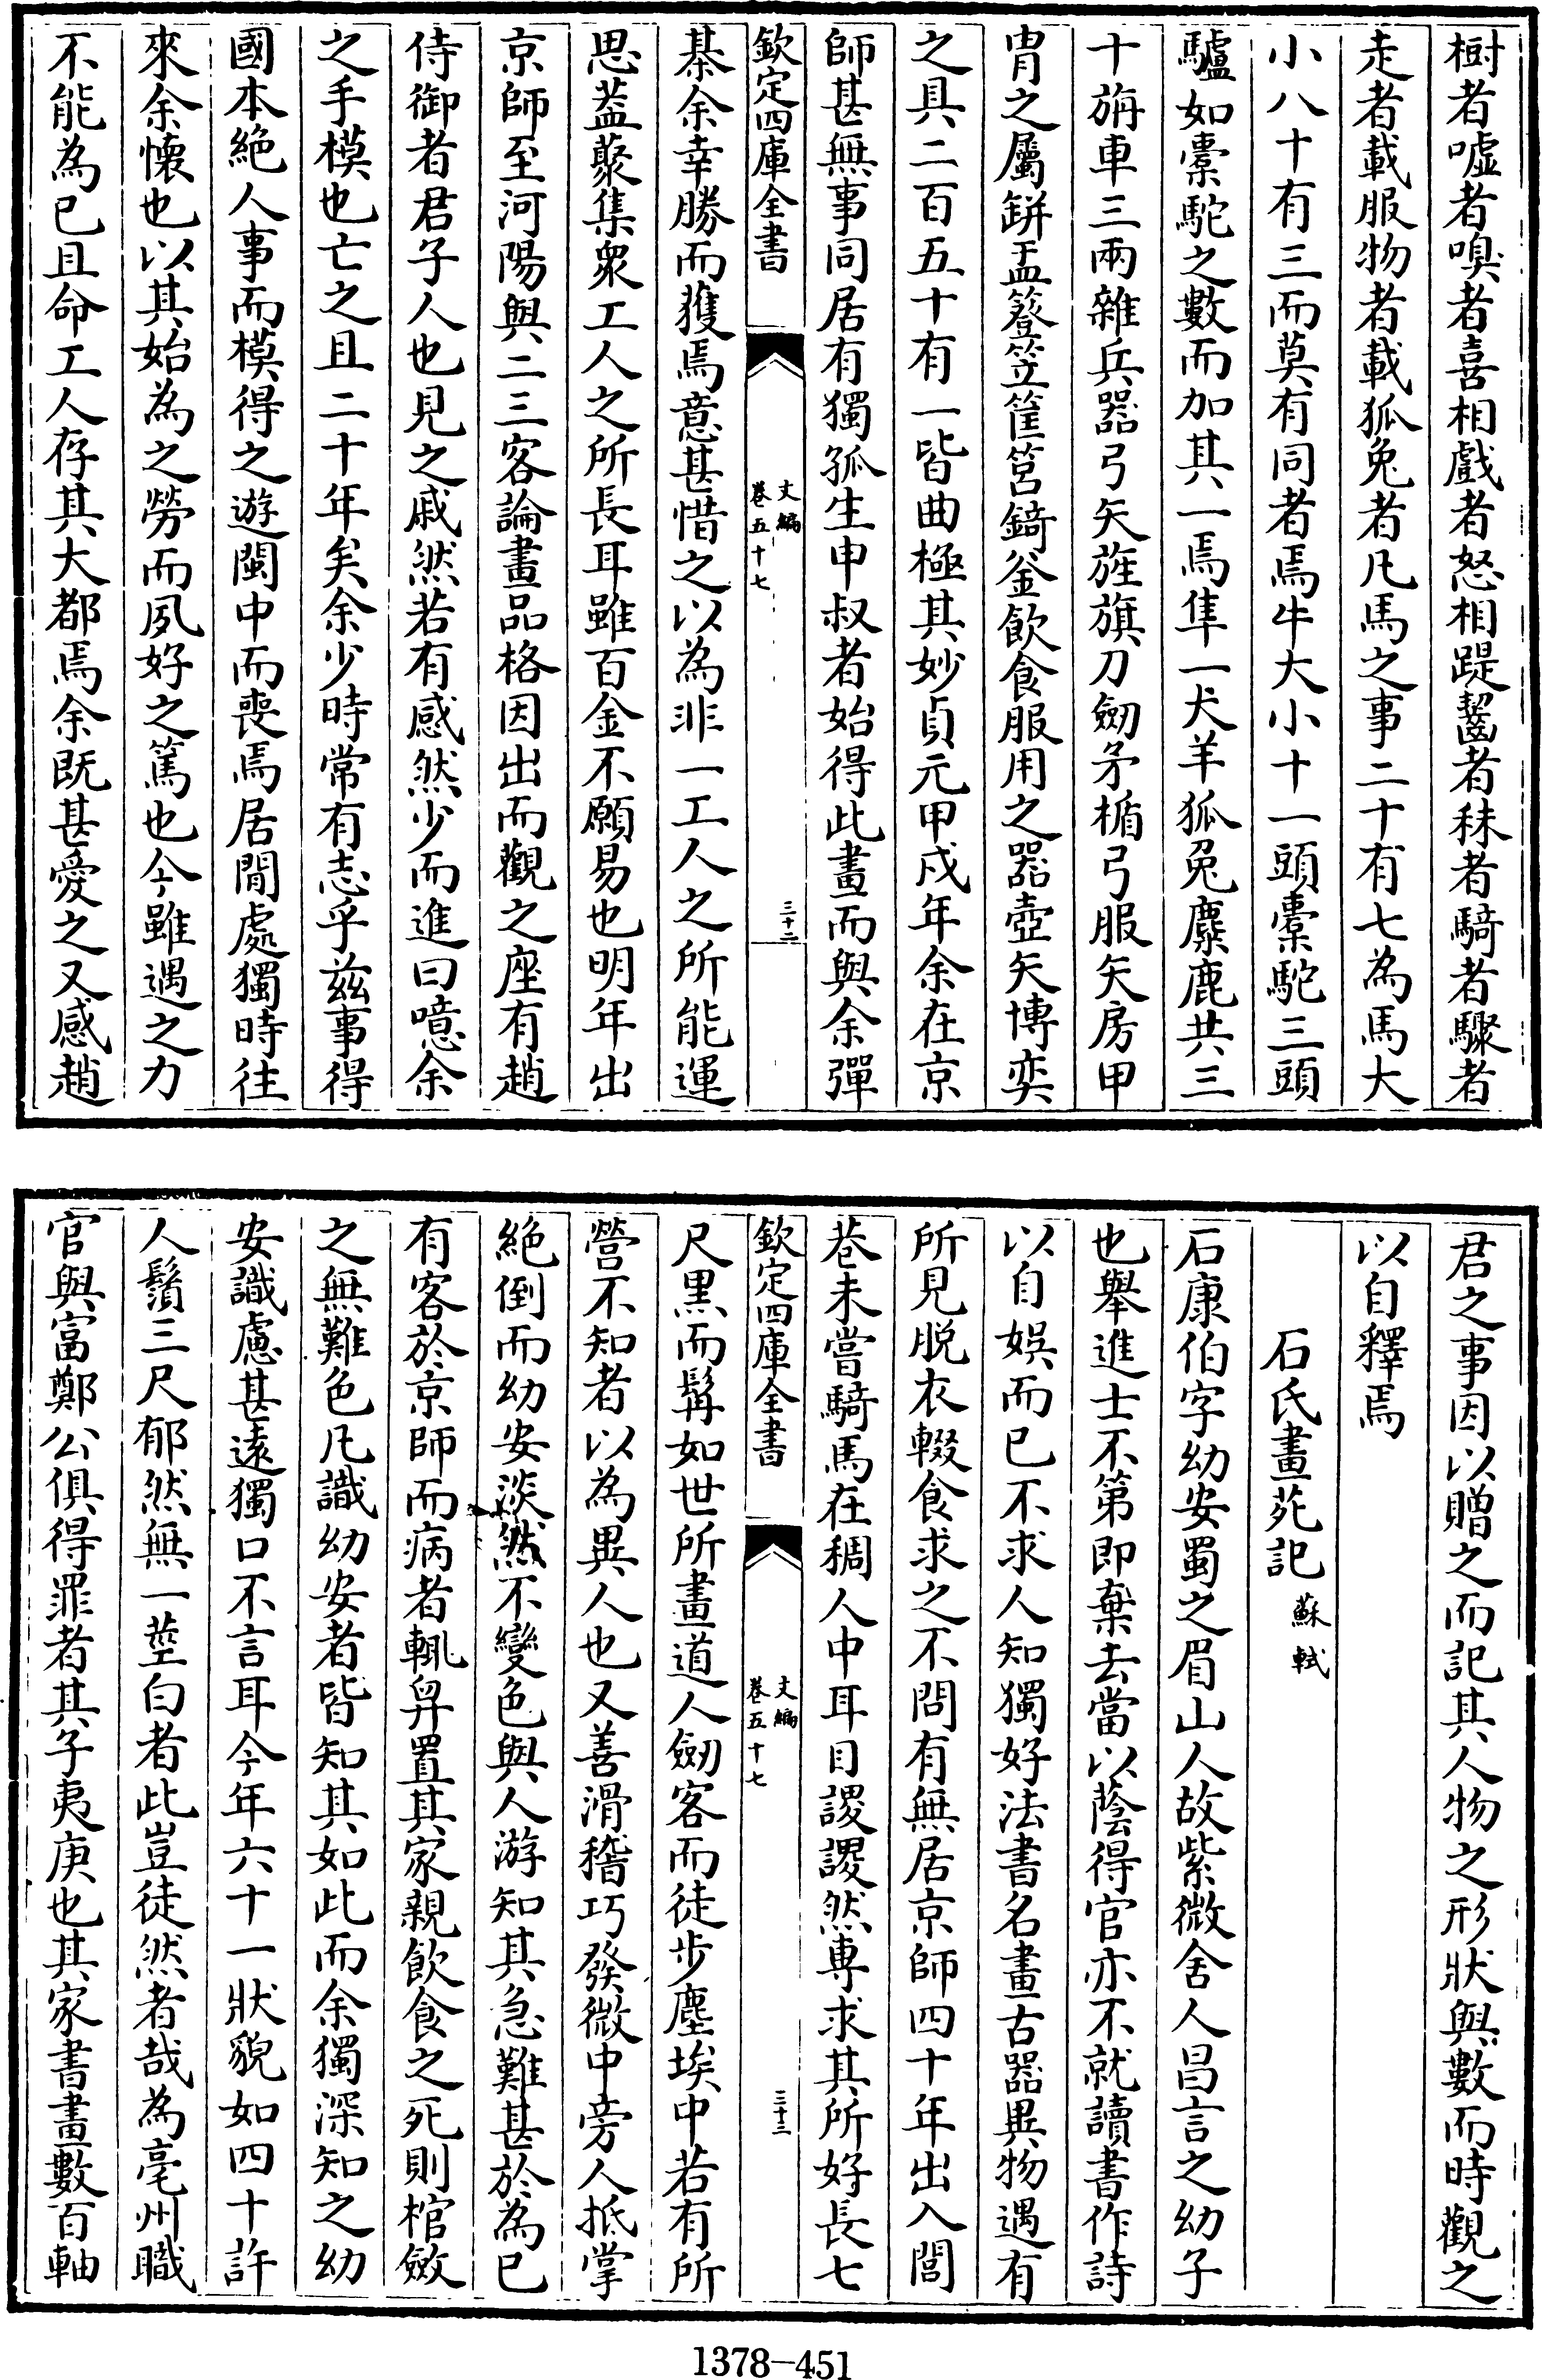 樹者噓者嗅者喜相戲者怒相踶齧者秣者騎者驟者
走者載服物者載狐兔者凡馬之事二十有七為馬大
小八十有三而莫有同者焉牛大小十一頭橐駝三頭
驢如橐駝之數而加其一焉隼一犬羊狐兔麋鹿共三
十旃車三兩雜兵器弓矢旌旗刀劒矛楯弓服矢房甲
胄之屬缾盂簦笠筐筥錡釜飲食服用之器壺矢博奕
之具二百五十有一皆曲極其妙貞元甲戌年余在京
師甚無事同居有獨孤生申叔者始得此畫而與余彈
欽定四庫全書
文編
卷五十七
三十二
棊余幸勝而獲焉意甚惜之以為非一工人之所能運
思蓋藂集衆工人之所長耳雖百金不願易也明年出
京師至河陽與二三客論畫品格因出而觀之座有趙
侍御者君子人也見之戚然若有感然少而進曰噫余
之手模也亡之且二十年矣余少時常有志乎茲事得
國本絕人事而模得之遊閩中而喪焉居閒處獨時往
來余懷也以其始為之勞而夙好之篤也今雖遇之力
不能為已且命工人存其大都焉余既甚愛之又感趙
君之事因以贈之而記其人物之形狀與數而時觀之
以自釋焉
石氏畫苑記 蘇軾
石康伯字幼安蜀之眉山人故紫微舍人昌言之幼子
也舉進士不第即棄去當以蔭得官亦不就讀書作詩
以自娛而已不求人知獨好法書名畫古器異物遇有
所見脫衣輟食求之不問有無居京師四十年出入閭
巷未嘗騎馬在稠人中耳目謖謖然専求其所好長七
欽定四庫全書
文編
卷五十七
三十三
尺黑而髯如世所畫道人劒客而徒步塵埃中若有所
營不知者以為異人也又善滑稽巧發微中旁人抵掌
絕倒而幼安淡然不變色與人游知其急難甚於為已
有客於京師而病者輒舁置其家親飲食之死則棺斂
之無難色凡識幼安者皆知其如此而余獨深知之幼
安識慮甚遠獨口不言耳今年六十一狀貌如四十許
人鬚三尺郁然無一莖白者此豈徒然者哉為亳州職
官與富鄭公俱得罪者其子夷庚也其家書畫數百軸
1378-451